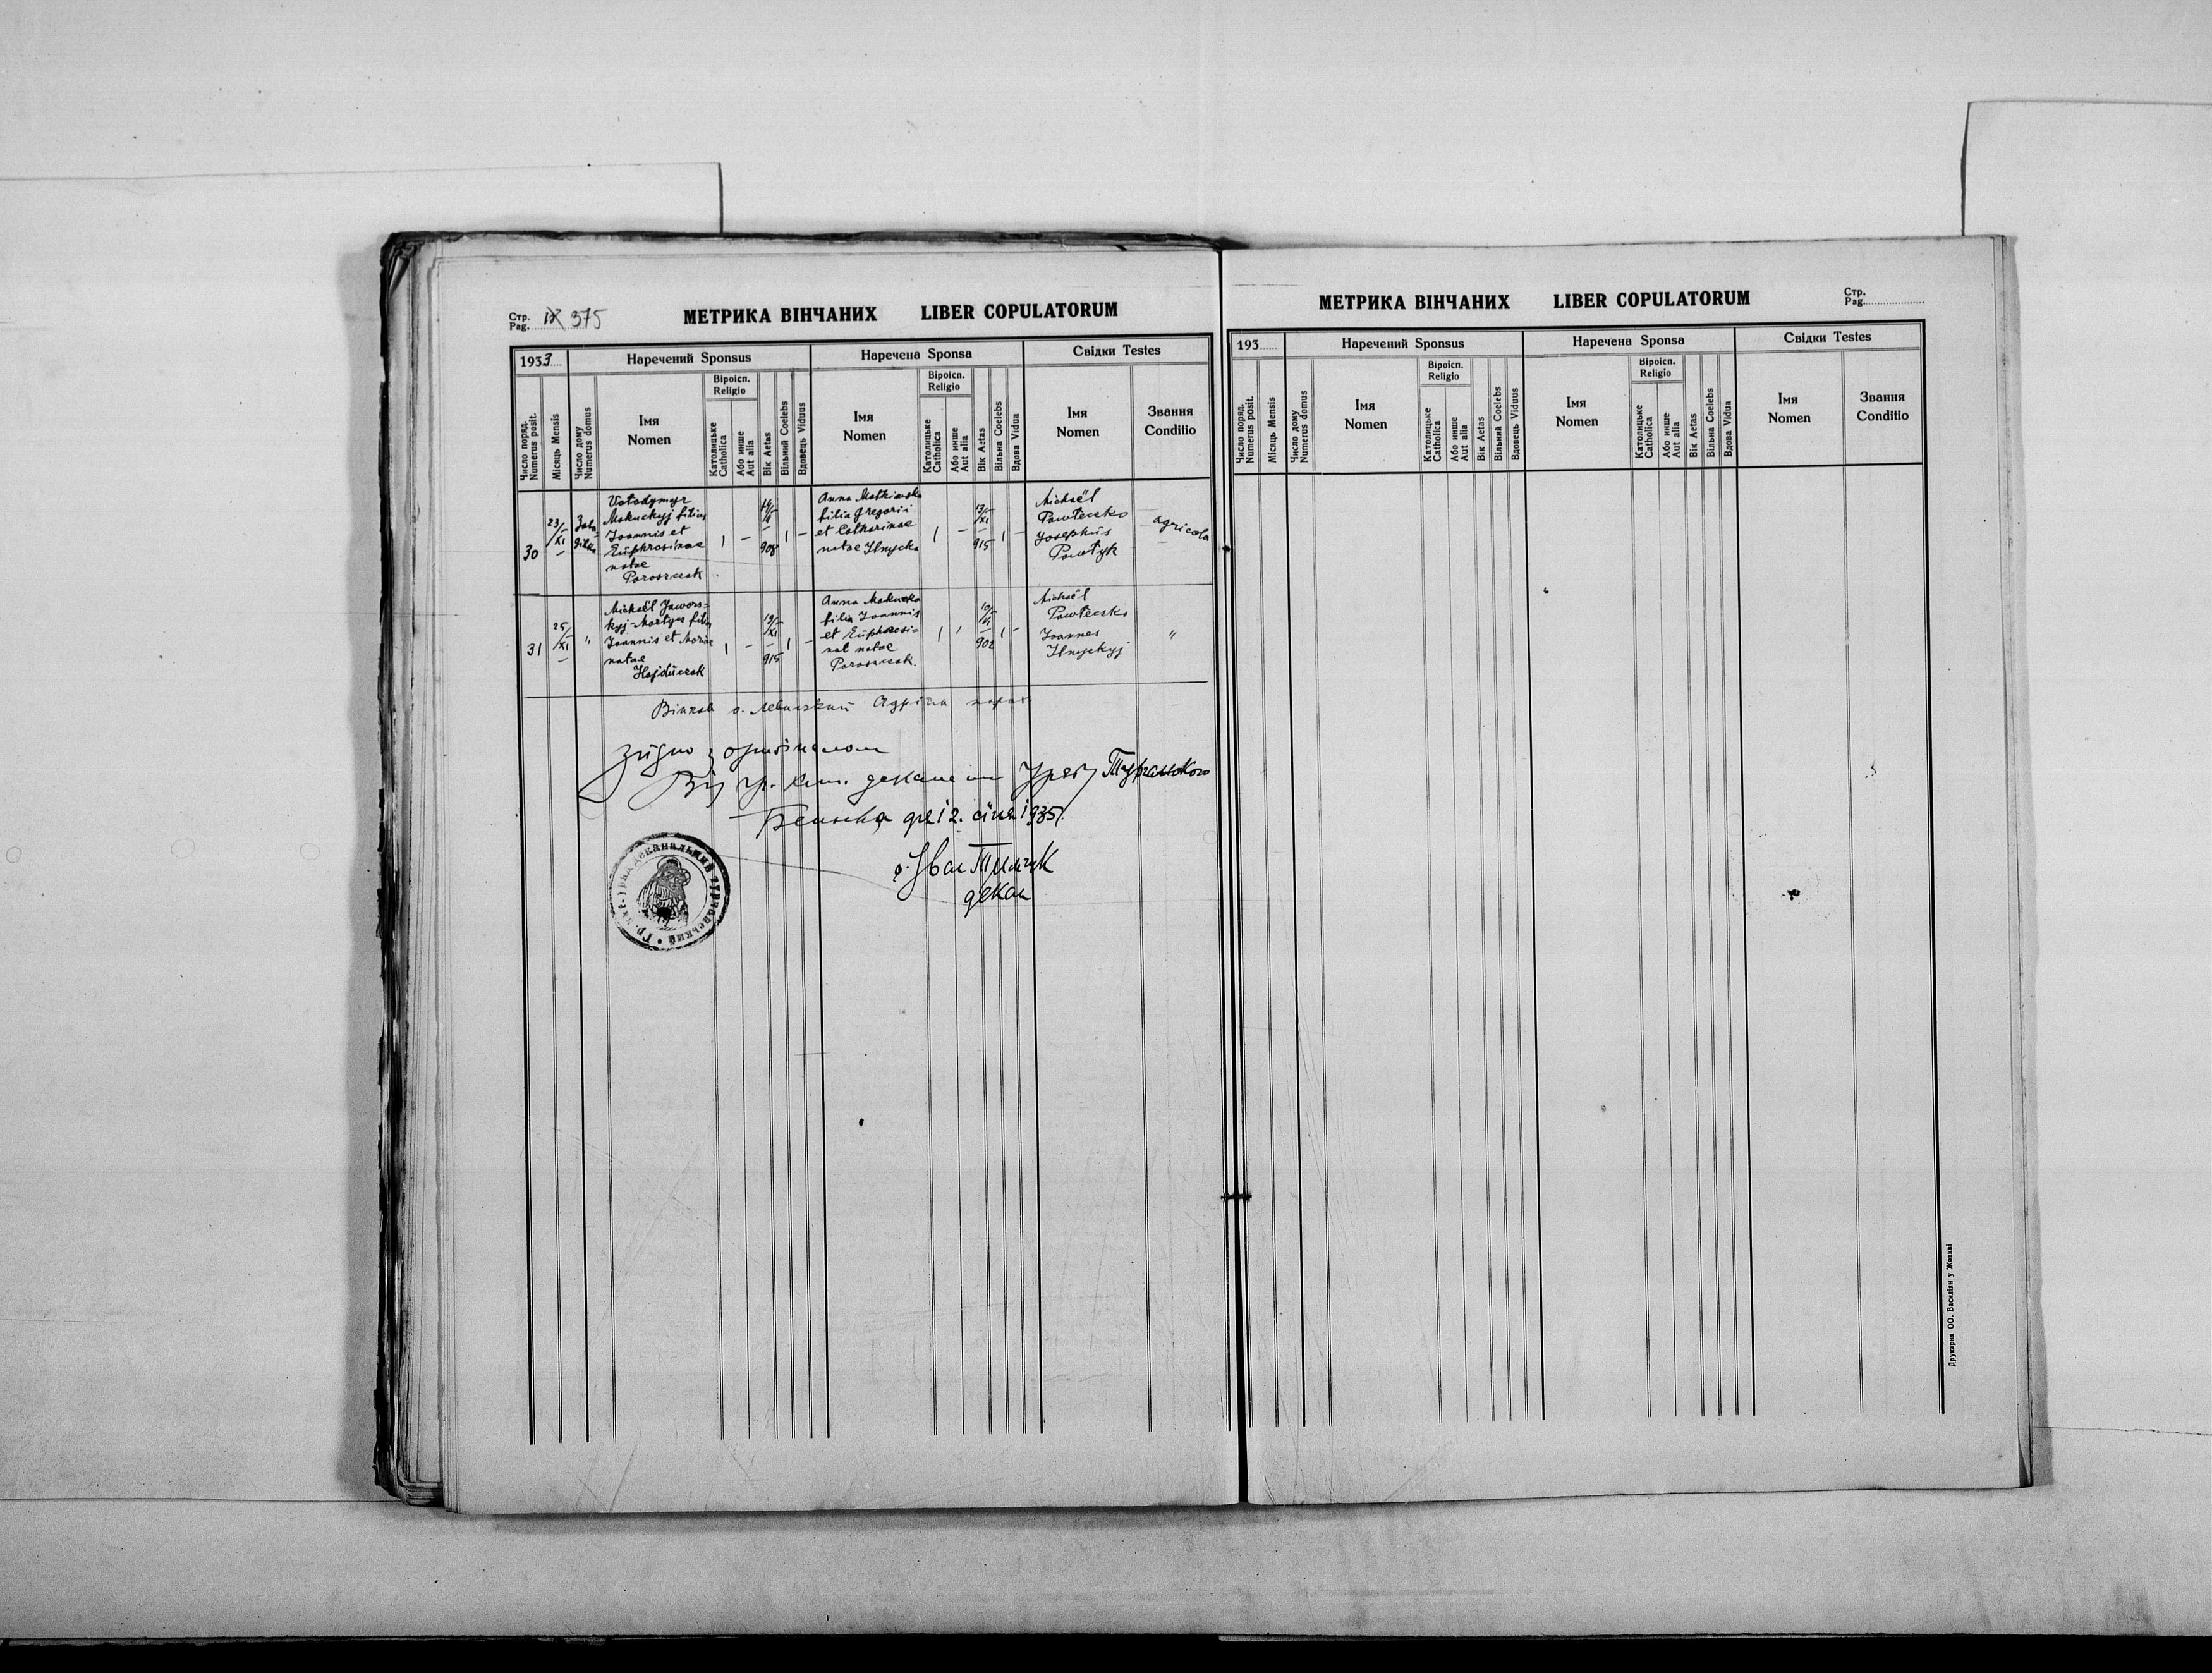 Стр. Pag. IX 375
МЕТРИКА ВІНЧАНИХ LIBER COPULATORUM
1933
Наречений Sponsus
Наречена Sponsa
Свідки Testes
Число поряд. Numerus posit.
Місяць Mensis
Число дому Numerus domus
Імя Nomen
Віроісп. Religio
Католицьке Catholica
Або инше Aut alia
Вік Aetas
Вільний Coelebs
Вдовець Viduus
Імя Nomen
Віроісп. Religio
Католицьке Catholica
Або инше Aut alia
Вік Aetas
Вільна Coelebs
Вдова Vidua
Імя Nomen
Звання Conditio
30
23/XI
Wołodymyr
Makuckyj filius
Joannis et
Euphrosinae
natae
Paroszczak
1
—
908
1
—
Anna Matkiwska
filia Gregorii
et Catharinae
natae Ilnycka
1
—
13/XI
915
1
—
Michaël
Pawłeczko
Josephus
Pawłyk
agricola
31
25/XI
"
Michaël Jawors=
kyj-Martyn filius
Joannis et Mariae
natae
Hajduczak
1
—
19/XI
915
1
—
Anna Makucka
filia Joannis
et Euphrosi=
nae natae
Paroszczak.
1
902
1
—
Michaël
Pawłeczko
Joannes
Ilnyckyj
"
Вінчав о. Левицький Адріян парох
Згідно з оригіналом
Від гр. кат. деканат. Уряду Турчанського
дня 12. січня 1935.
о. Іван
декан
МЕТРИКА ВІНЧАНИХ LIBER COPULATORUM
Стр. Pag.
193
Наречений Sponsus
Наречена Sponsa
Свідки Testes
Число поряд. Numerus posit.
Місяць Mensis
Число дому Numerus domus
Імя Nomen
Віроісп. Religio
Католицьке Catholica
Або инше Aut alia
Вік Aetas
Вільний Coelebs
Вдовець Viduus
Імя Nomen
Віроісп. Religio
Католицьке Catholica
Або инше Aut alia
Вік Aetas
Вільна Coelebs
Вдова Vidua
Імя Nomen
Звання Conditio
Друкарня ОО. Василіян у Жовкві